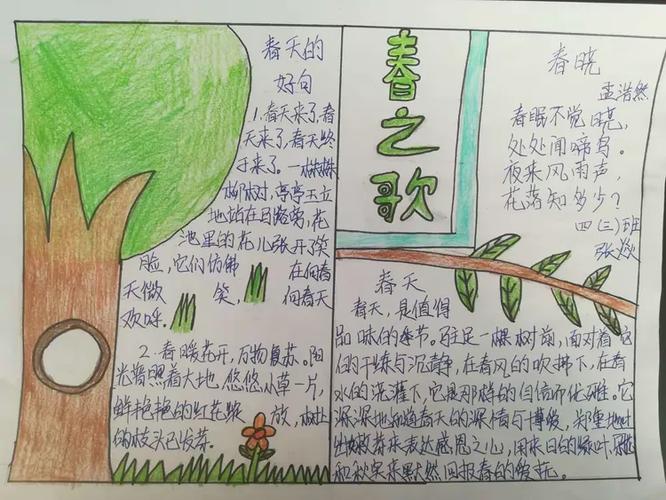 春天的
好句
1、春天来了,春
天来了,春天终
于来了。一株株
柳树,亭亭玉立
地站在马路旁,花
池里的花儿张开了笑
脸,它们仿佛在向春
天微笑,向春天
欢呼。
2、春暖花开,万物复苏。阳
光普照着大地,悠悠小草一片,
鲜艳艳的红花绽放,树
的枝头已发芽。
春之歌
春晓
孟浩然
春眠不觉晓,
处处闻啼鸟。
夜来风雨声,
花落知多少?
四(三)班
张
春天
春天,是值得
品味的季节。驻足一棵树前,面对着它
的干练与沉静,在春风的吹拂下,在春
水的浇灌下,它是那样的自信而优雅。它
深深地知道春天的深情与博爱,
来表达感恩之心,用来日的绿叶、
和秋实来默然回报春的爱抚。